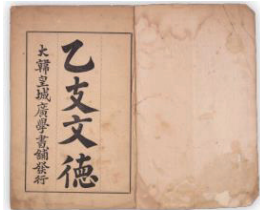 乙支文德
大韓皇城廣學書鋪發行